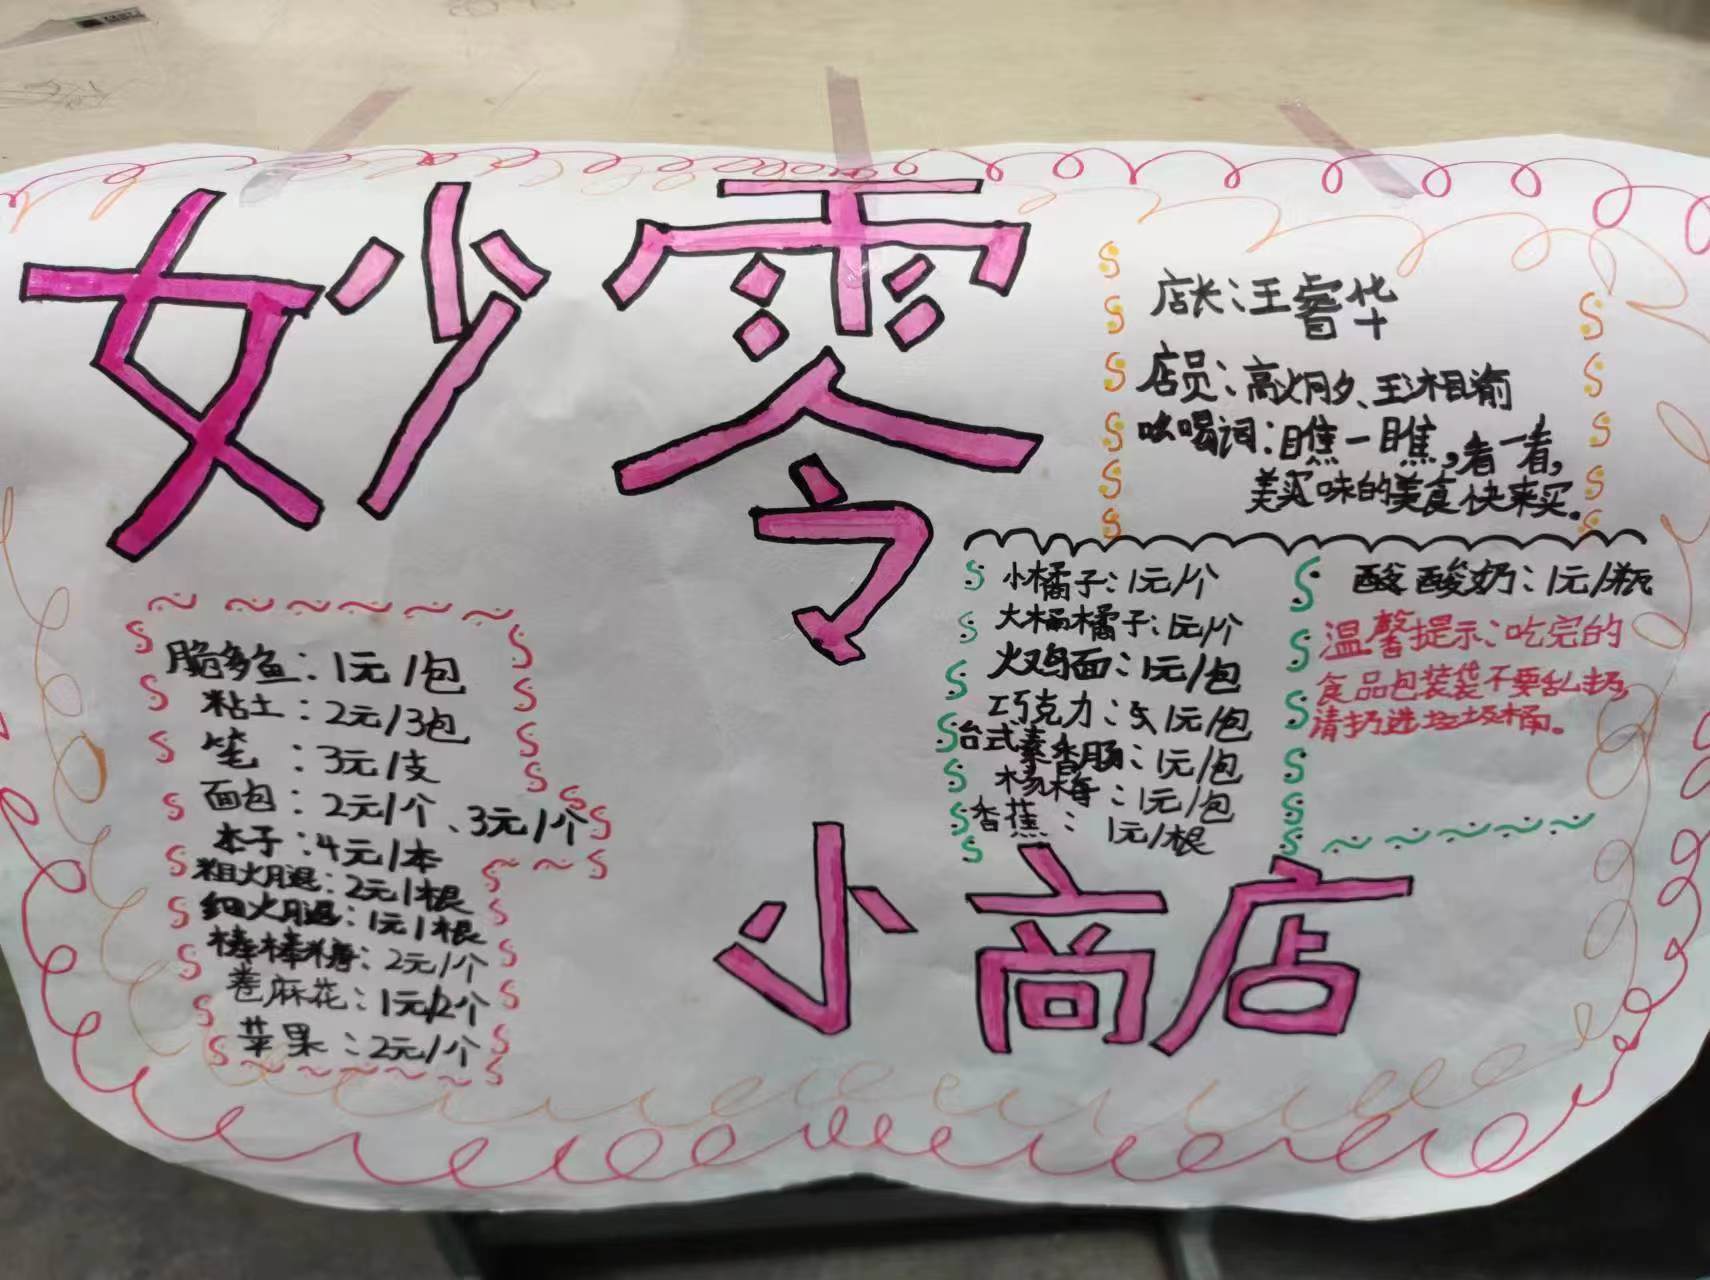 妙零
小商店
店长:王睿华
店员:高炏月、王湘渝
吆喝词:瞧一瞧,看一看,
美买味的美食快来买。
脆多鱼:1元/包
粘土:2元/3包
笔:3元/支
面包:2元/个、3元/个
本子:4元/本
粗火腿:2元/根
细火腿:1元/根
棒棒糖:2元/个
卷麻花:1元/2个
苹果:2元/个
小橘子:1元/个
大橘橘子:1元/个
火鸡面:1元/包
巧克力:1元/包
台式素香肠:1元/包
杨梅:1元/包
香蕉:1元/根
酸酸奶:1元/瓶
温馨提示:吃完的
食品包装袋不要乱扔,
请扔选垃圾桶。